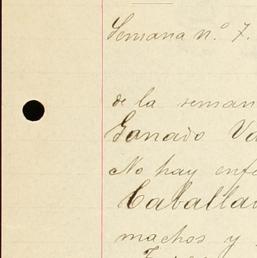 Semana n.º 7.
de la seman
Ganado Va
No hay enfe
Caballa
machos y